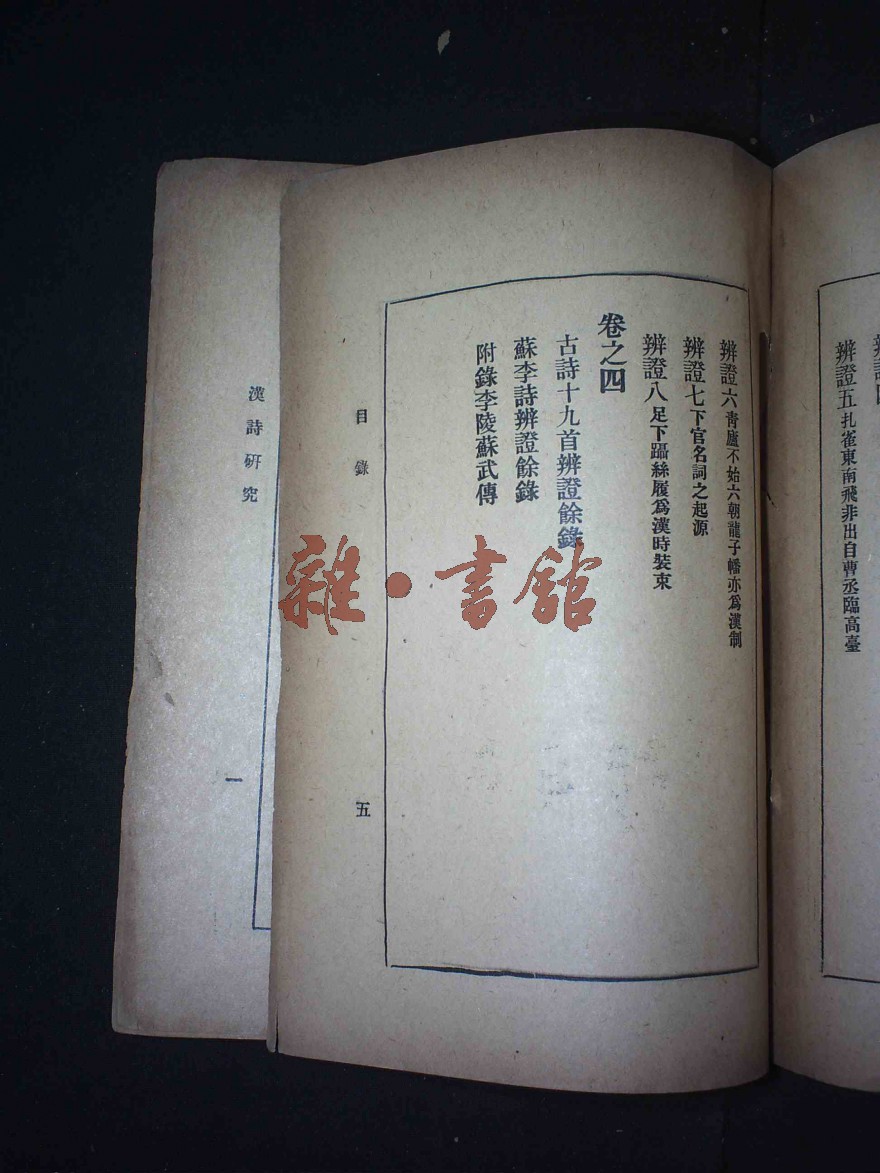 辨證五扎雀東南飛非出自曹丞臨高臺
辨證六青廬不始六朝龍子幡亦爲漢制
辨證七下官名詞之起源
辨證八足下躡絲履爲漢時裝束
卷之四
古詩十九首辨證餘錄
蘇李詩辨證餘錄
附錄李陵蘇武傳
目錄
五
漢詩研究
一
雜·書館